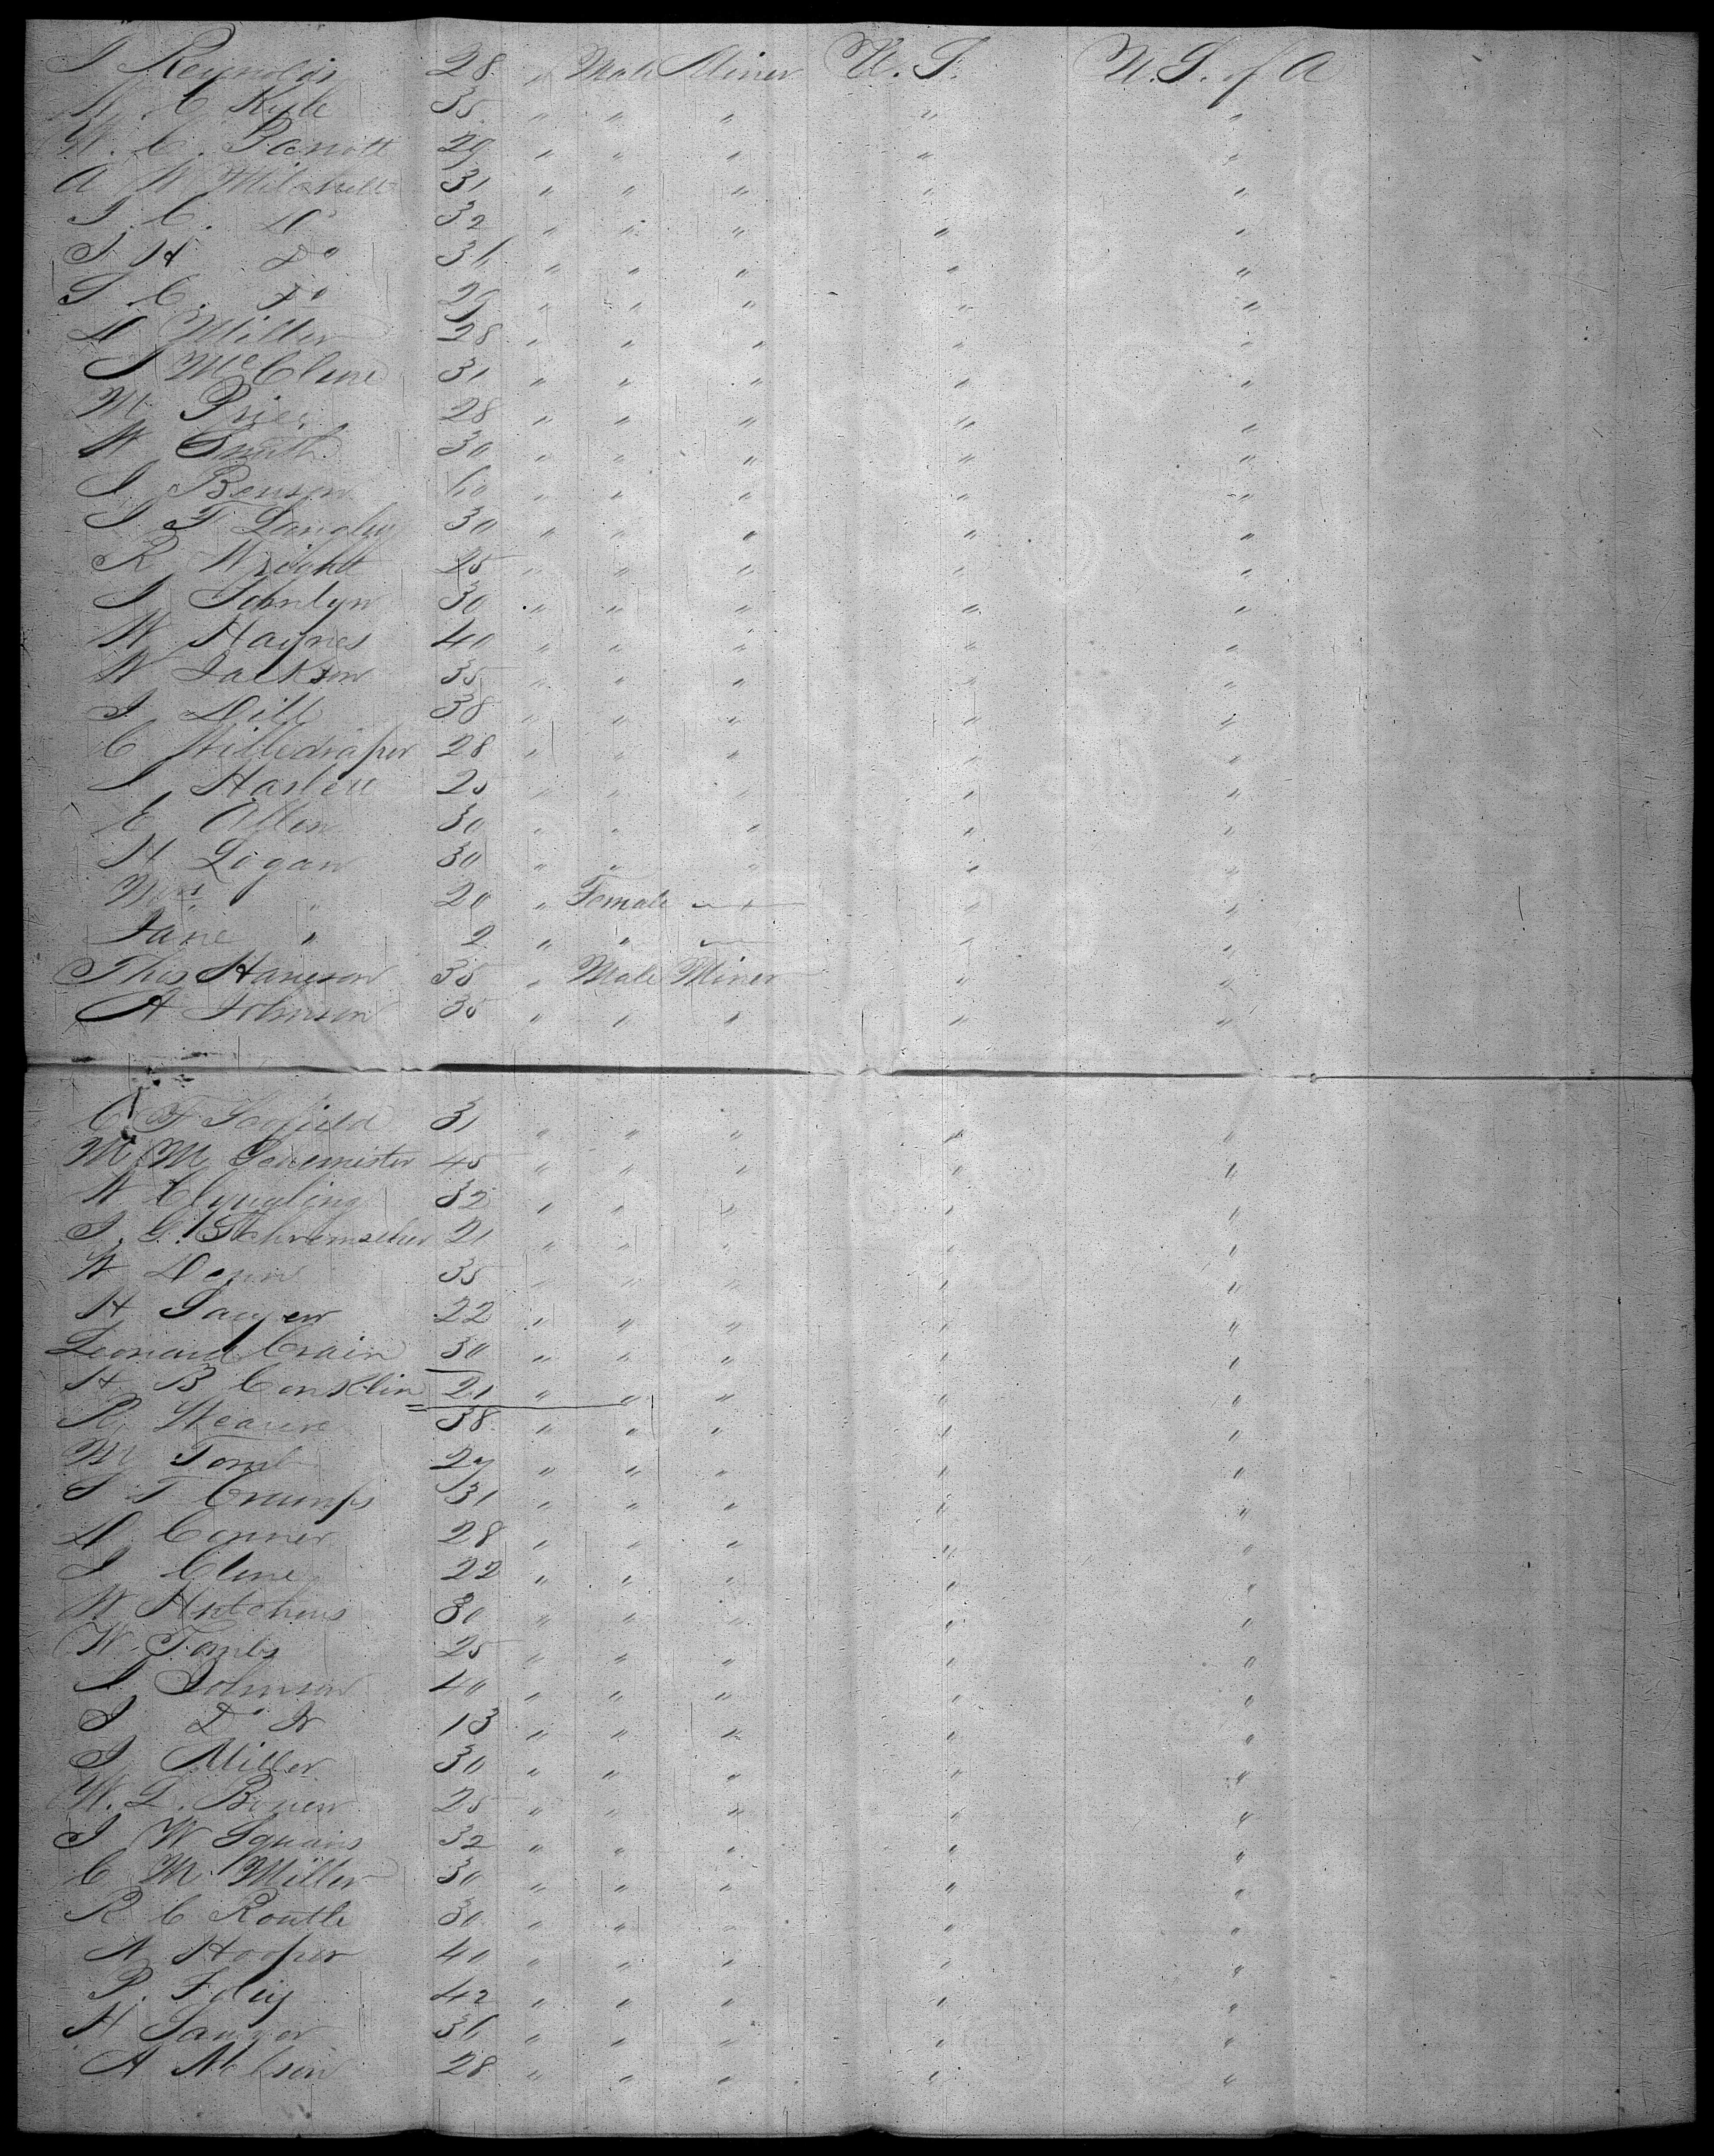 J Reynolds 28 " Male Miner U. S. U. S. of A
W C Kyle 35 " " " " "
W. C. Parrott 29 " " " " "
A W Mitchell 31 " " " " "
J. C. Do 32 " " " " "
J H Do 36 " " " " "
S. C. Do 29 " " " " "
D Miller 28 " " " " "
J McClure 31 " " " " "
M Price 28 " " " " "
W Smith 30 " " " " "
J Benson 60 " " " " "
J F Langley 30 " " " " "
R Wright 25 " " " " "
J 30 " " " " "
W Haynes 40 " " " " "
W Jackson 35 " " " " "
J Dill 38 " " " " "
C Hilledraper 28 " " " " "
J Haslett 25 " " " " "
E Allen 30 " " " " "
H Logan 30 " " " " "
Mrs " 20 " Female " "
Jane " 2 " " " "
Thos Hanson 38 " Male Miner " "
A Johnson 35 " " " " "
C F Scofield 31 " " " " "
M M 45 " " " " "
W 32 " " " " "
J. G. 21 " " " " "
W 35 " " " " "
H Sawyer 22 " " " " "
Leonard Crain 30 " " " " "
H B Conklin 21 " " " " "
R Weaver 38 " " " " "
M Tomb 27 " " " " "
S T Crumps 31 " " " " "
D Conner 28 " " " " "
J Cline 22 " " " " "
W Hutchens 30 " " " " "
W. Tombs 25 " " " " "
J Johnson 40 " " " " "
J Do Jr 13 " " " " "
J Miller 30 " " " " "
W. L. Bowen 25 " " " " "
J W Squairs 32 " " " " "
C M Miller 30 " " " " "
R C Routh 30 " " " " "
A Hooper 40 " " " " "
P. Foley 42 " " " " "
H Sawyer 36 " " " " "
A Nelson 28 " " " " "